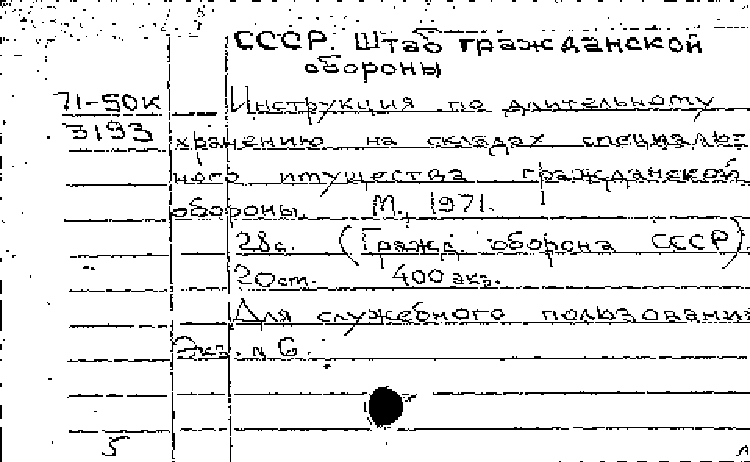 СССР. Штаб гражданской
обороны
71-50к
3193
Инструкция по длительному
хранению на складах специаль-
ного имущества гражданской
обороны. М., 1971.
28с. (Гражд. оборона СССР).
20см. 400 экз.
Для служебного пользования
Экз. N 6.
5